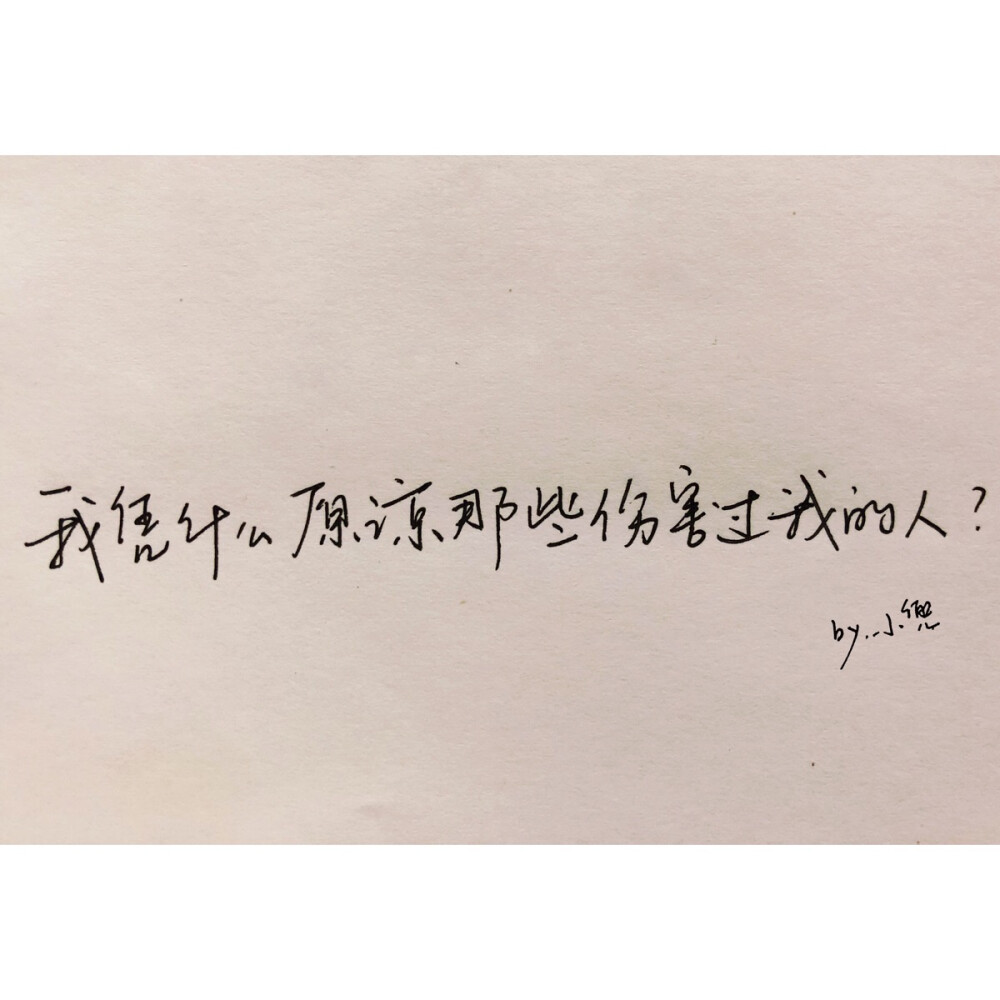 我凭什么原谅那些伤害过我的人?
by..小